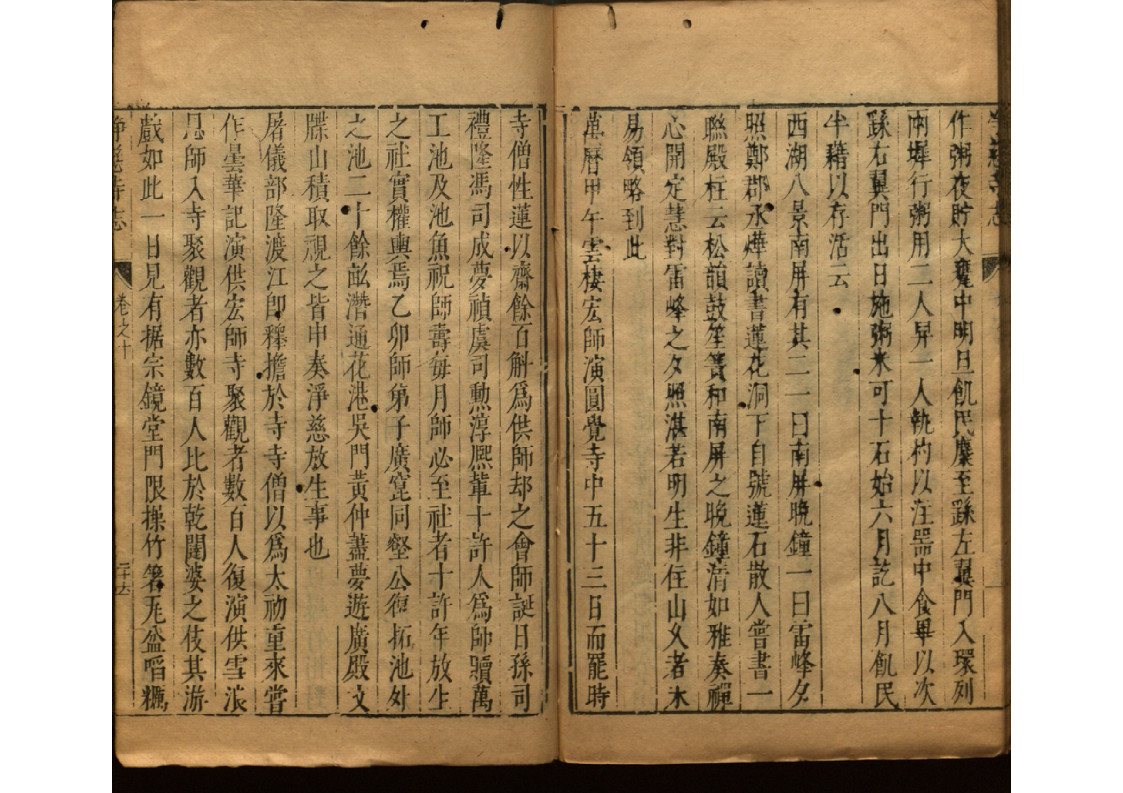 作粥夜貯大甕中明旦飢民麇至繇左翼門入環列
兩墀行粥用二人舁一人執杓以注器中食畢以次
繇右翼門出日施粥米可十石始六月訖八月飢民
半藉以存活云
西湖八景南屏有其二一曰南屏晚鐘一曰雷峰夕
照鄭郡丞燁讀書蓮花洞下自號蓮石散人嘗書一
聮殿柱云松韻鼓笙簧和南屏之晚鐘清如雅奏禪
心開定慧對雷峰之夕照湛若明生非住山久者未
易領略到此
萬曆甲午雲棲宏師演圓覺寺中五十三日而罷時
寺僧性蓮以齋餘百斛爲供師却之會師誕日孫司
禮隆馮司成夢禎虞司勲淳熈輩十許人爲師贖萬
工池及池魚祝師壽每月師必至社者十許年放生
之社實權輿焉乙卯師弟子廣寬同壑公復拓池外
之池二十餘畝潛通花港吳門黃仲蘦夢遊廣殿文
牒山積取視之皆申奏淨慈放生事也
屠儀部隆渡江即釋擔於寺寺僧以爲太初重來嘗
作曇華記演供宏師寺聚觀者數百人復演供雪浪
恩師入寺聚觀者亦數百人比於乾闥婆之伎其游
戲如此一日見有据宗鏡堂門限操竹箸瓦盆㗖糲
淨慈寺志
卷之十
二十六